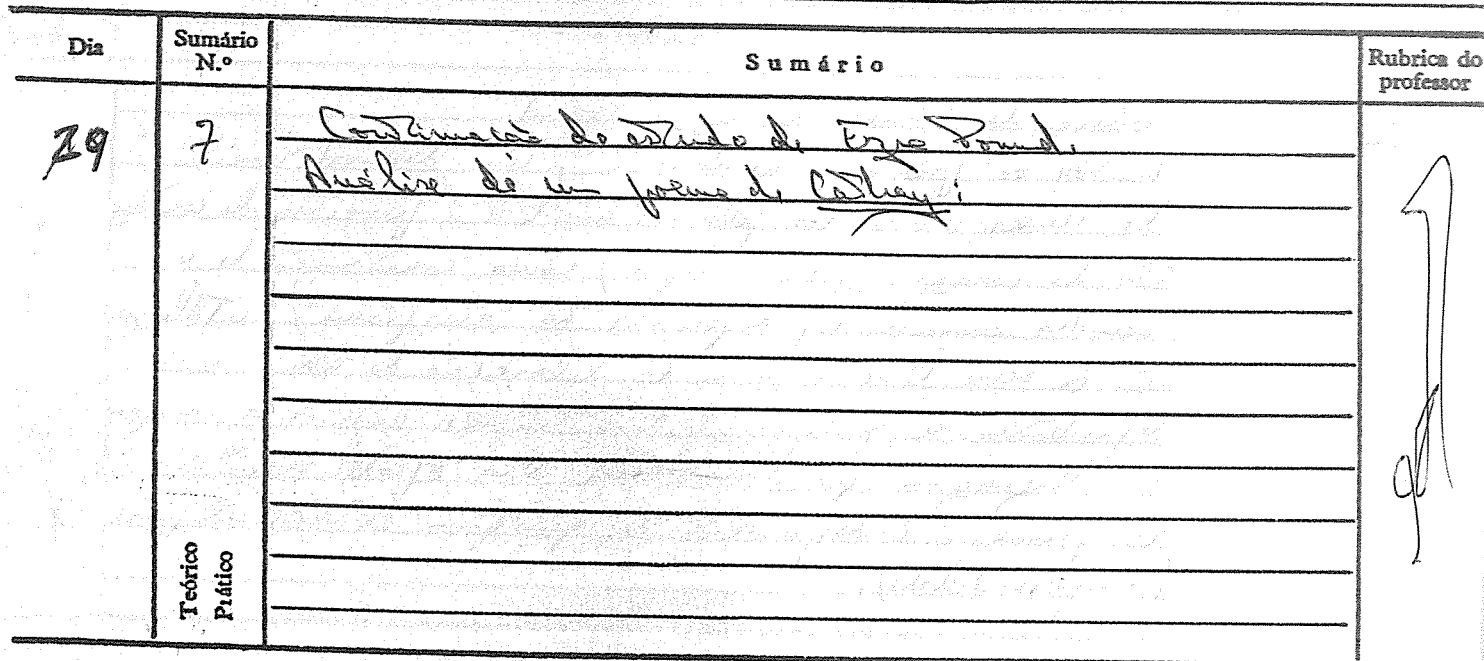 Dia
Sumário N.º
Sumário
Rubrica do professor
7
Continuação do estudo de Ezra Pound.
Análise de um poema de Cathay:
Teórico
Prático